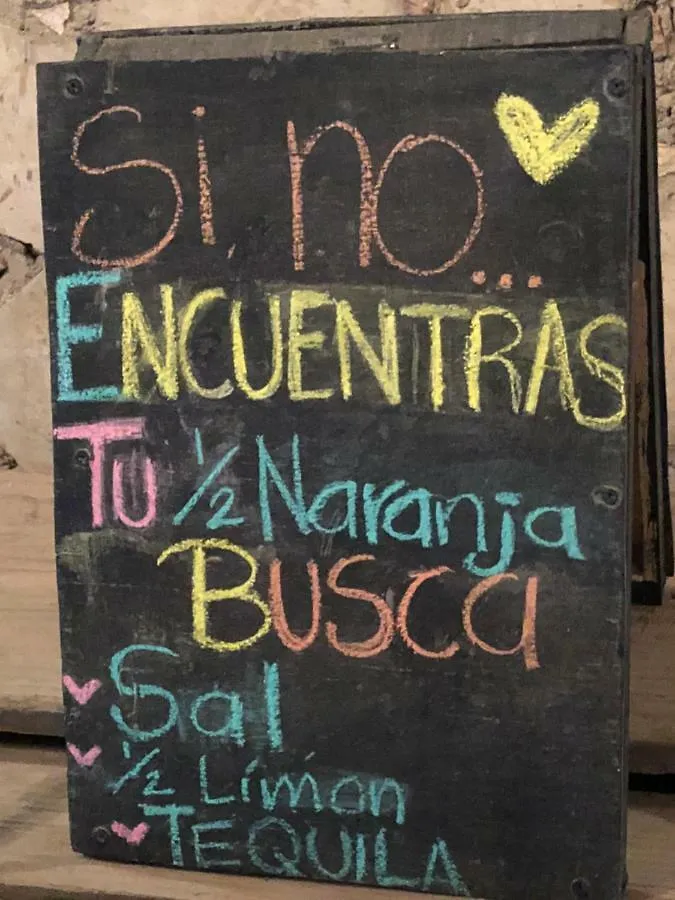 Si no...
ENCUENTRAS
TU 1/2 Naranja
BUSCa
Sal
1/2 Límon
TEQUILA